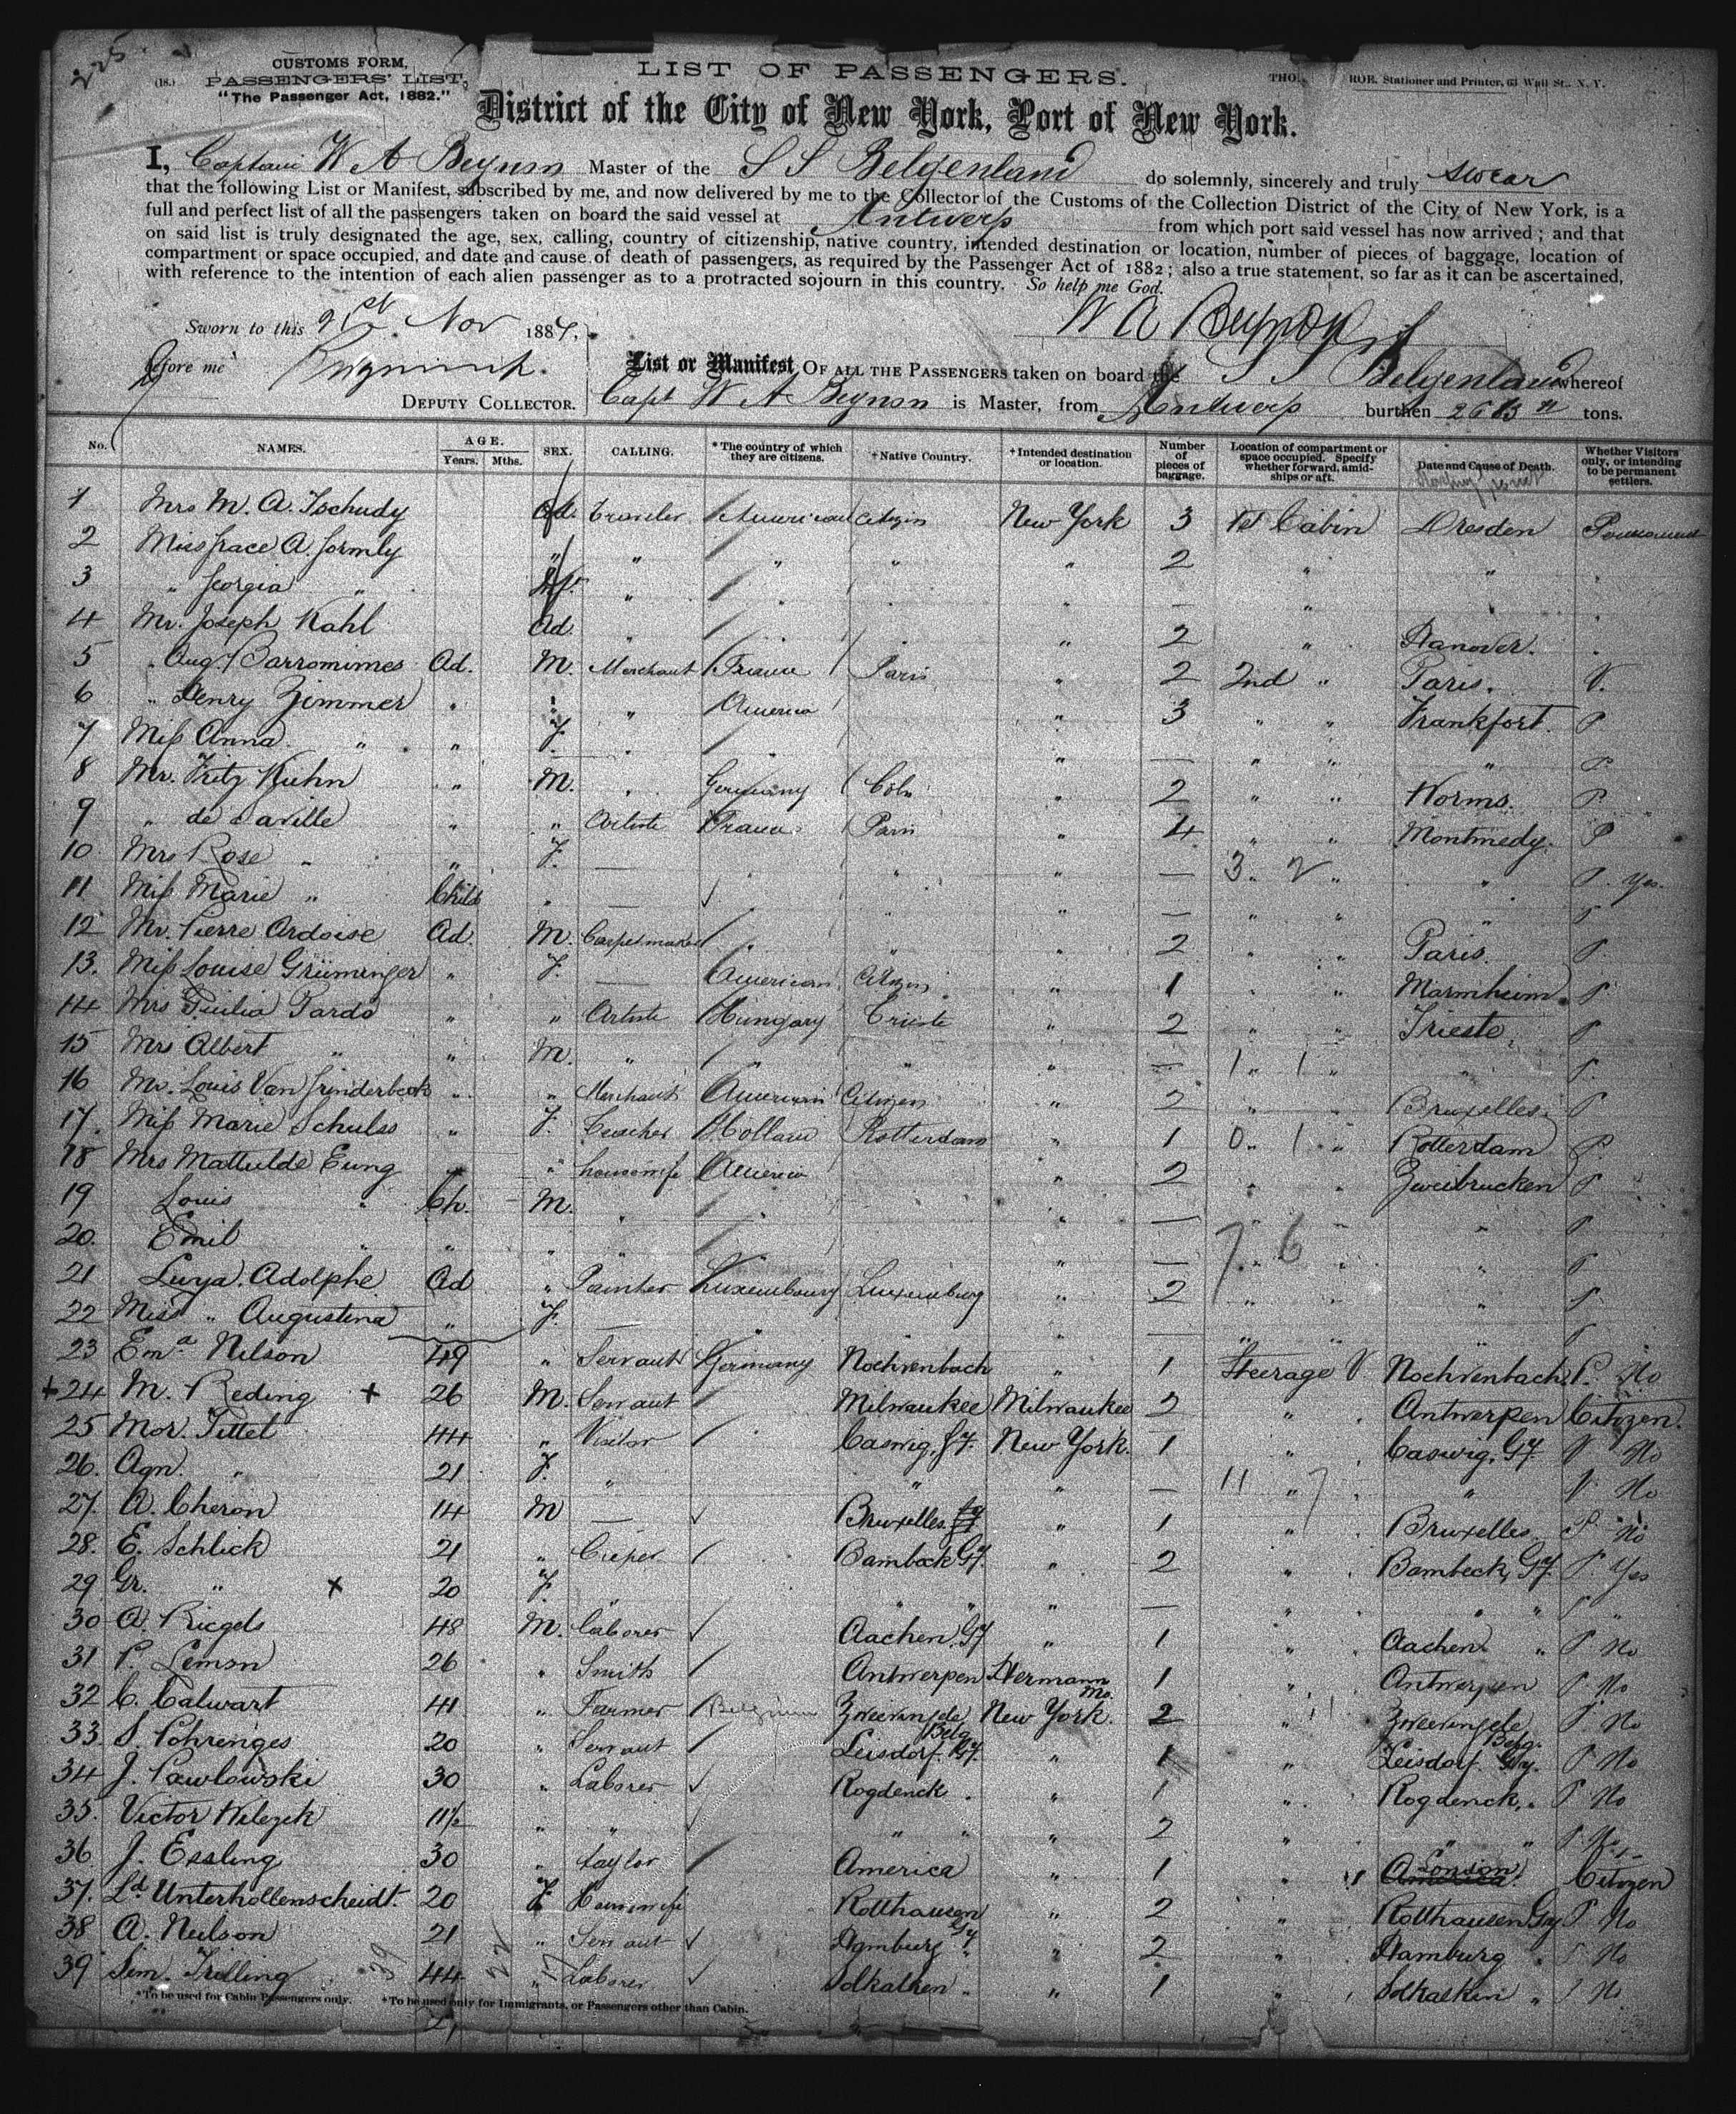 225
CUSTOMS FORM,
(18.) PASSENGERS' LIST,
"The Passenger Act, 1882."
LIST OF PASSENGERS.
THO. ROR, Stationer and Printer, 63 Wall St., N. Y.
District of the City of New York, Port of New York.
I, Captain W A Beynon Master of the S S Belgenland do solemnly, sincerely and truly swear
that the following List or Manifest, subscribed by me, and now delivered by me to the Collector of the Customs of the Collection District of the City of New York, is a
full and perfect list of all the passengers taken on board the said vessel at Antwerp from which port said vessel has now arrived; and that
on said list is truly designated the age, sex, calling, country of citizenship, native country, intended destination or location, number of pieces of baggage, location of
compartment or space occupied, and date and cause of death of passengers, as required by the Passenger Act of 1882; also a true statement, so far as it can be ascertained,
with reference to the intention of each alien passenger as to a protracted sojourn in this country. So help me God.
Sworn to this 21st Nov 1887, W A Beynon
before me
DEPUTY COLLECTOR.
List or Manifest OF ALL THE PASSENGERS taken on board the S S Belgenland whereof
Capt W A Beynon is Master, from Antwerp burthen tons.
No. NAMES. AGE. Years. Mths. SEX. CALLING. *The country of which they are citizens. †Native Country. †Intended destination or location. Number of pieces of baggage. Location of compartment or space occupied. Specify whether forward, amidships or aft. Date and Cause of Death. Whether Visitors only, or intending to be permanent settlers.
1 Mrs M. A. Tschudy Ad. Traveler American Citizen New York 3 1st Cabin Dresden Permanent
2 Miss Grace A. Gormly " " " " " 2 " "
3 " Georgia " " " " — " "
4 Mr. Joseph Kahl Ad. " " " 2 " Hanover.
5 " Aug. Barromimes Ad. M. Merchant France Paris " 2 2nd " Paris. V.
6 " Henry Zimmer " " " America " 3 " " Frankfort. P
7 Miss Anna " " F. " " — " " " P
8 Mr. Fritz Kuhn " M. " Germany Coln " 2 " " Worms. P
9 " de " " Artiste France Paris " 4 " " Montmedy. P
10 Mrs Rose " " F. — " " " — 3 " 2 " " P. Yes.
11 Miss Marie " Child " — " " " — " " " P
12 Mr. Pierre Ardoise Ad. M. Carpetmaker " " " 2 " " Paris. P.
13. Miss Louise Grüminger " F. — American Citizen " 1 " " Marmheim P
14 Mrs Giulia Tardo " " Artiste Hungary Trieste " 2 " " Trieste. P
15 Mr Albert " " M. " " " " — 1 " 1 " " P.
16 Mr. Louis Van Grinderbeck " " Merchant American Citizen " 2 " " Bruxelles P
17. Miss Marie Schulss " F. Teacher Holland Rotterdam " 1 0 " 1 " Rotterdam P.
18 Mrs Mathilde Eung " " housewife America " 2 " " Zweibrucken P
19 Louis " Ch. M. " " " — " " " P
20. Emil " " " " " — 7 " 6 " " P
21 Luya. Adolphe Ad " Painter Luxembourg Luxemburg " 2 " " " P
22 Miss " Augustina " F. — " " " — " " " P
23 Ema Nilson 49 " Servant Germany Nochrenbach " 1 Steerage V Nochrenbach P. No
+24 M. Reding + 26 M. Servant Milwaukee Milwaukee 2 " Antwerpen Citizen.
25 Mor. Tittel 44 " Visitor Caswig, Gy. New York. 1 " Caswig, Gy. V No
26. Agn. " 21 F. " " " — 11 " 7 " V No
27. A. Cheron 14 M — Bruxelles " 1 " Bruxelles P. No
28. E. Schlick 21 " Bambeck Gy. " 2 " Bambeck, Gy. P Yes
29 Gr. " + 20 F. " " " — " " P "
30 A. Riegels 48 M. Laborer Aachen Gy " 1 " Aachen " P No
31 P. Lemon 26 " Smith Antwerpen Hermann Mo. 1 " Antwerpen P No
32 C. Calwart 41 " Farmer Belgium Zweevingele Belg. New York. 2 " Zweevingele Belg. P. No
33. S. Pohrenges 20 " Servant Leisdorf. Gy. " 1 " Leisdorf. Gy. P No
34 J. Pawlowski 30 " Laborer Rogdenck " 1 " Rogdenck, " P No
35. Victor Wilezik 11½ " " " " " 2 " " " P. No
36 J. Essling 30 " taylor America " 1 " America London Citizen
37. Ld. Unterhollenscheidt. 20 F Housewife Rotthausen " 2 " Rotthausen Gy P No
38 A. Neilson 21 " Servant Hamburg Gy " 2 " Hamburg " P No
39 Sim. Trilling 44 " Laborer Solkalken " " 1 " Solkalken " P No
*To be used for Cabin Passengers only. †To be used only for Immigrants, or Passengers other than Cabin.